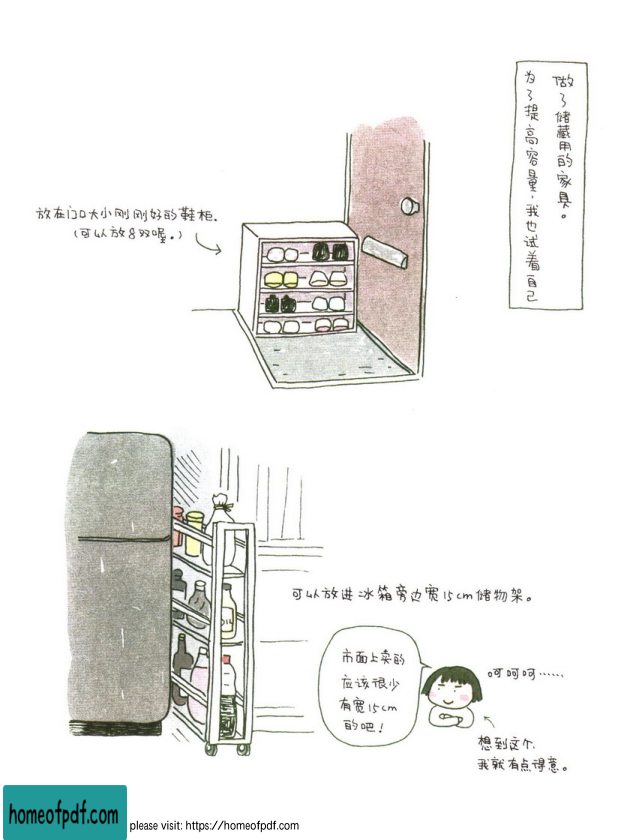 为了提高容量，我也试着自己
做了储藏用的家具。
放在门口大小刚刚好的鞋柜.
(可以放8双喔。)
可以放进冰箱旁边宽15cm储物架。
OIL
市面上卖的
应该很少
有宽15cm
的吧！
呵呵呵……
想到这个
我就有点得意。
homeofpdf.com
please visit: https://homeofpdf.com